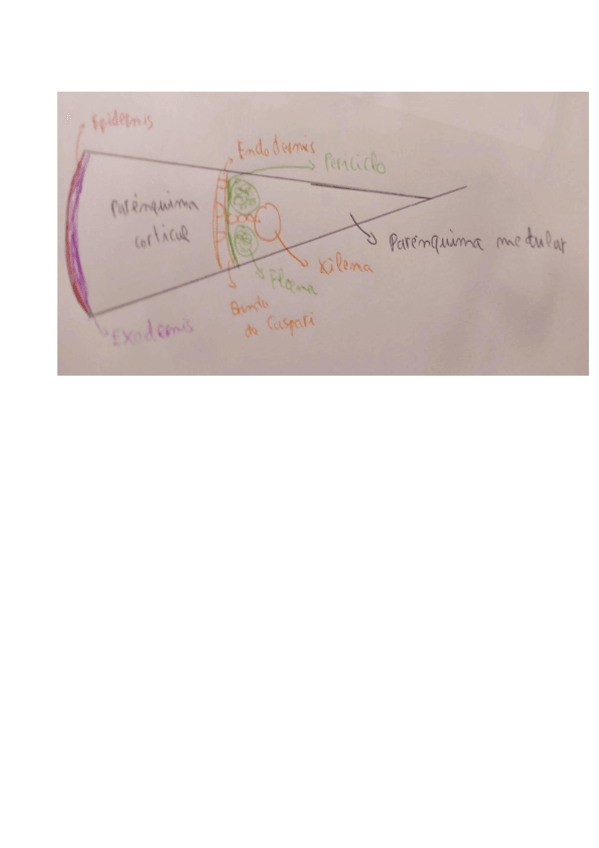 Epidermis
Endodermis
Periciclo
Parénquima
cortical
Parénquima medular
Xilema
Floema
Banda
de Caspari
Exodermis